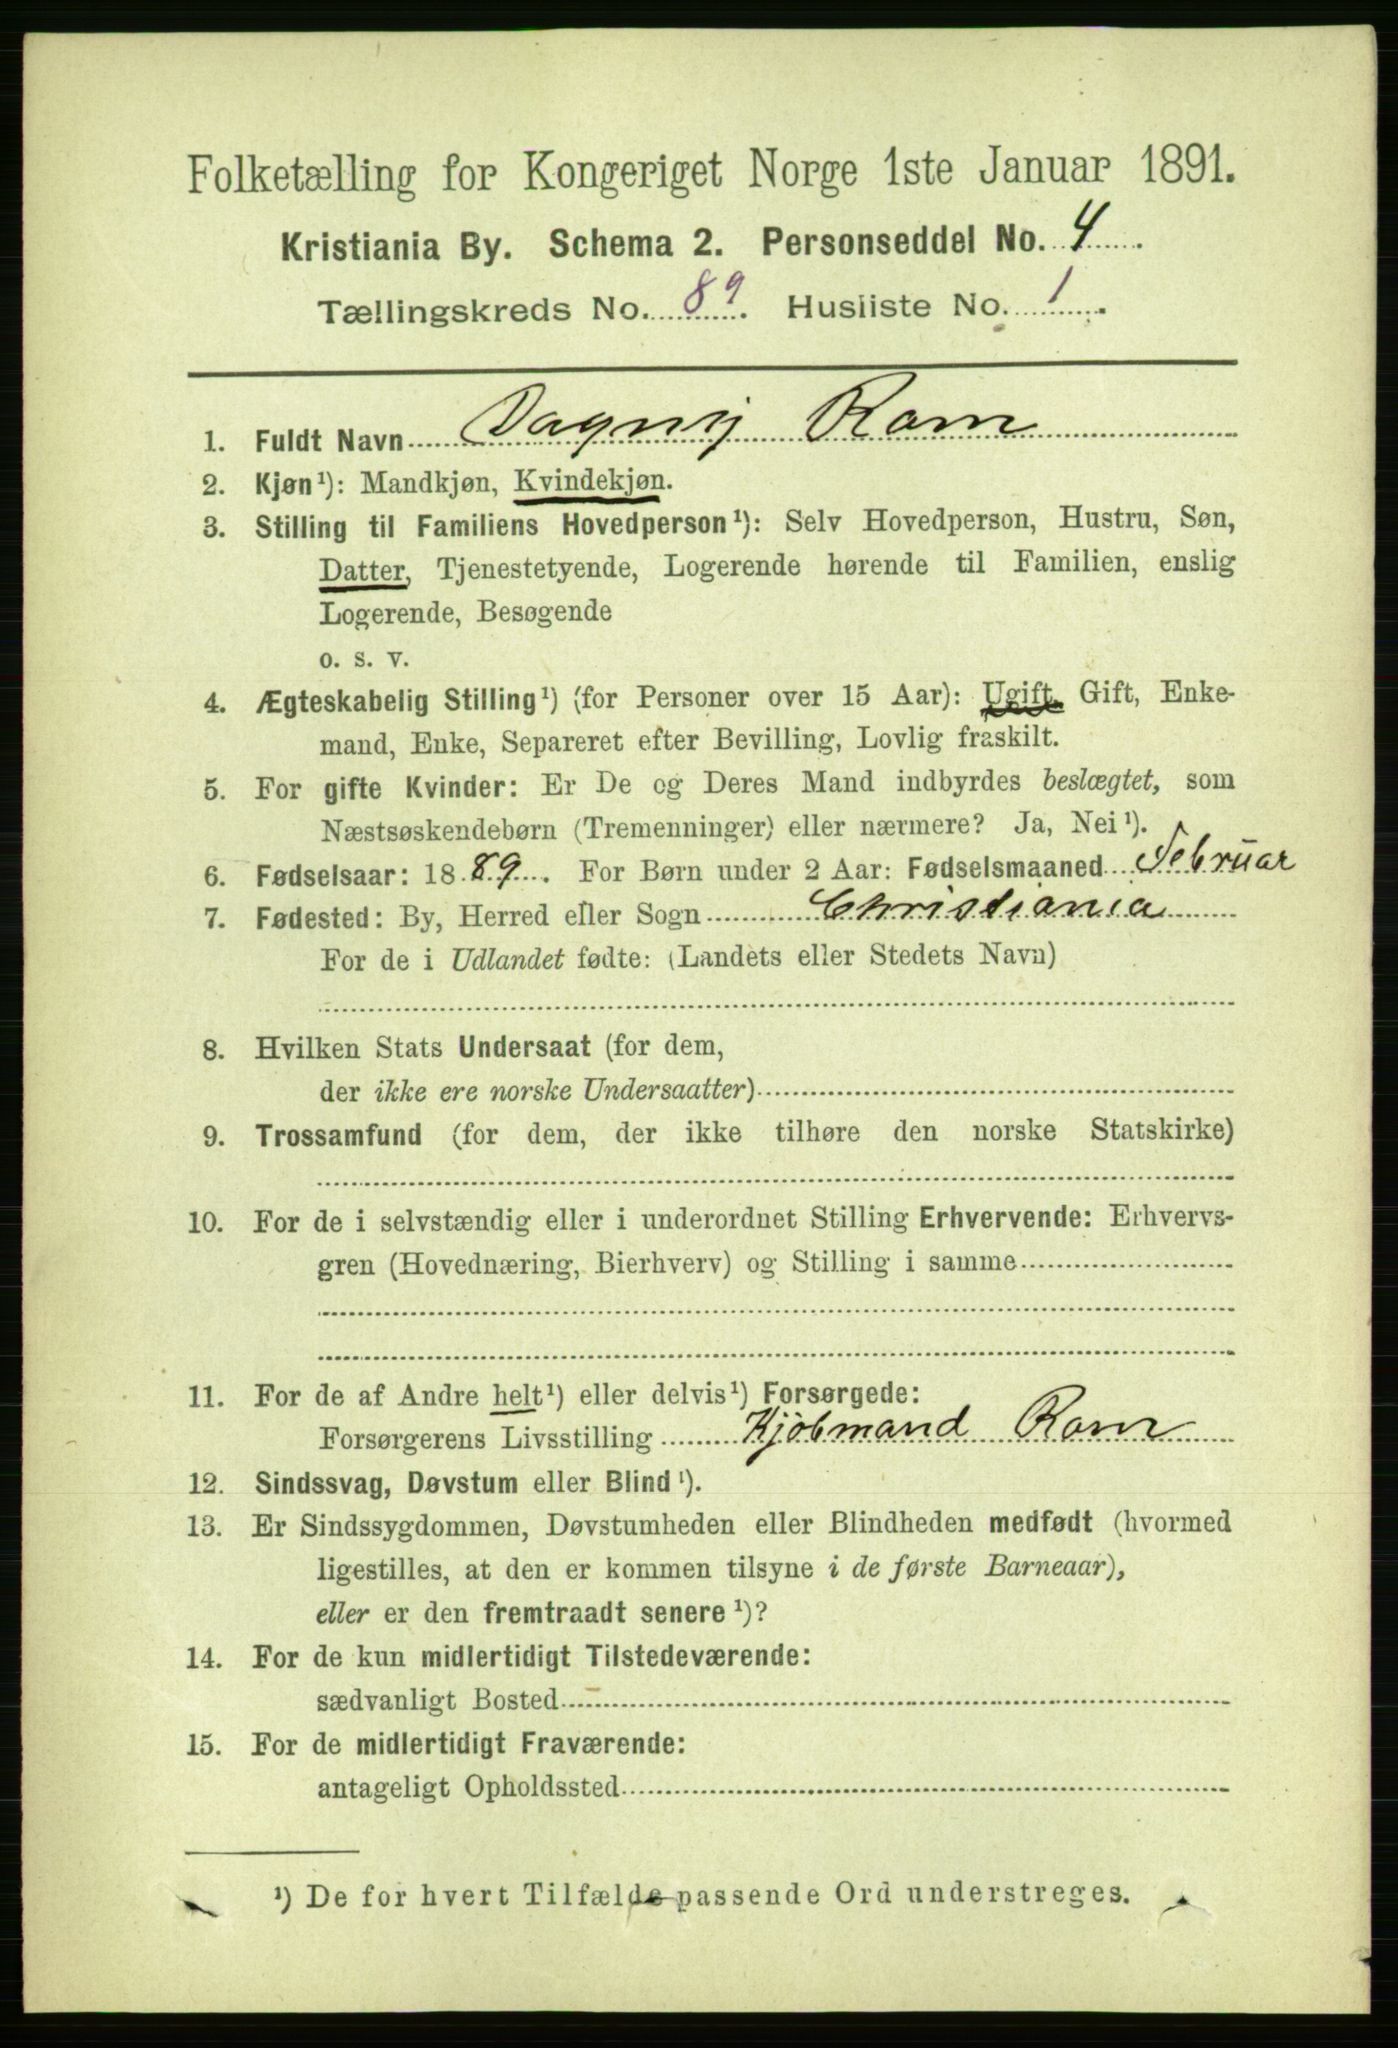 Folketælling for Kongeriget Norge 1ste Januar 1891.
Kristiania By. Schema 2. Personseddel No. 4
Tællingskreds No. 89. Husliste No. 1.
1. Fuldt Navn Dagny Ram
2. Kjøn¹): Mandkjøn, Kvindekjøn.
3. Stilling til Familiens Hovedperson¹): Selv Hovedperson, Hustru, Søn,
Datter, Tjenestetyende, Logerende hørende til Familien, enslig
Logerende, Besøgende
o. s. v.
4. Ægteskabelig Stilling¹) (for Personer over 15 Aar): Ugift, Gift, Enke-
mand, Enke, Separeret efter Bevilling, Lovlig fraskilt.
5. For gifte Kvinder: Er De og Deres Mand indbyrdes beslægtet, som
Næstsøskendebørn (Tremenninger) eller nærmere? Ja, Nei¹).
6. Fødselsaar: 1889. For Børn under 2 Aar: Fødselsmaaned Februar
7. Fødested: By, Herred eller Sogn Christiania
For de i Udlandet fødte: (Landets eller Stedets Navn)
8. Hvilken Stats Undersaat (for dem,
der ikke ere norske Undersaatter)
9. Trossamfund (for dem, der ikke tilhøre den norske Statskirke)
10. For de i selvstændig eller i underordnet Stilling Erhvervende: Erhvervs-
gren (Hovednæring, Bierhverv) og Stilling i samme
11. For de af Andre helt¹) eller delvis¹) Forsørgede:
Forsørgerens Livsstilling Kjøbmand Ram
12. Sindssvag, Døvstum eller Blind¹).
13. Er Sindssygdommen, Døvstumheden eller Blindheden medfødt (hvormed
ligestilles, at den er kommen tilsyne i de første Barneaar),
eller er den fremtraadt senere¹)?
14. For de kun midlertidigt Tilstedeværende:
sædvanligt Bosted
15. For de midlertidigt Fraværende:
antageligt Opholdssted
¹) De for hvert Tilfælde passende Ord understreges.